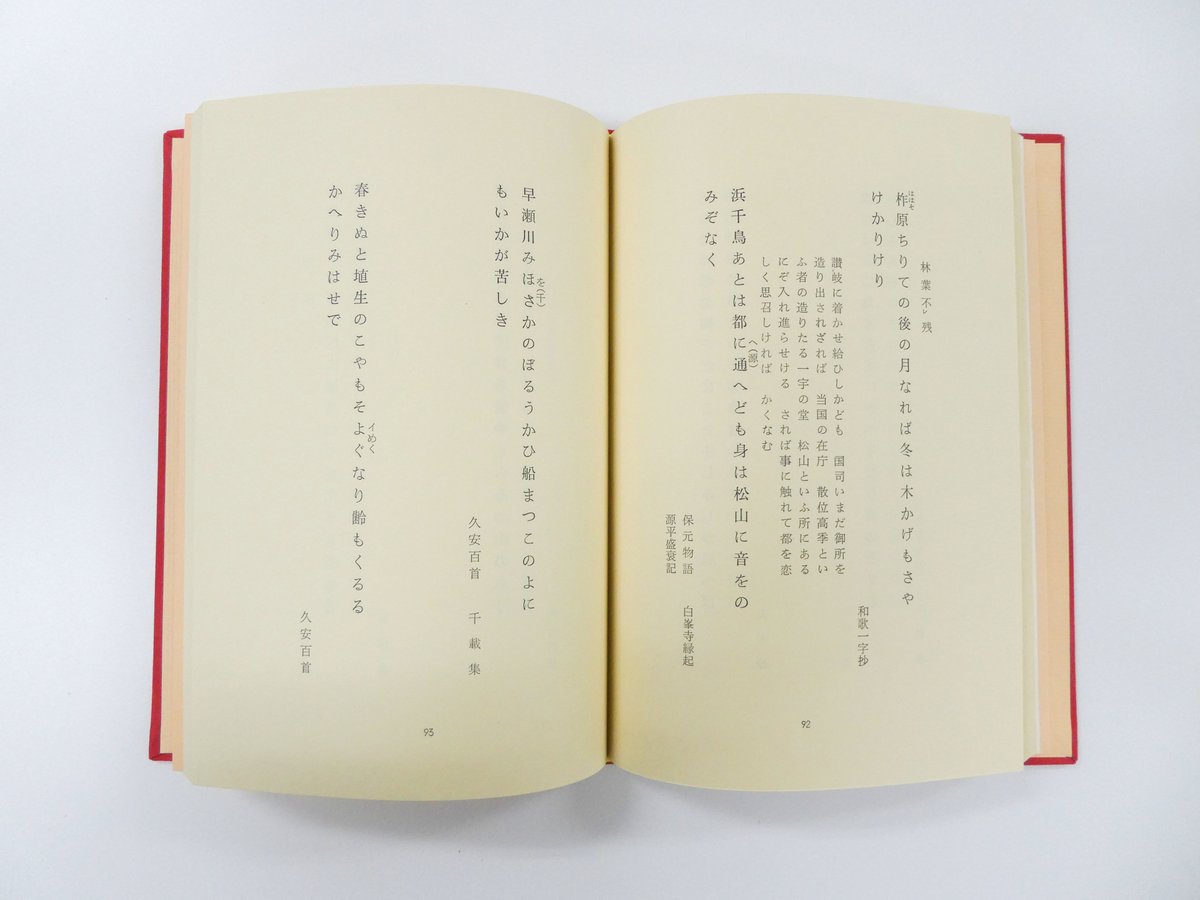 林葉不レ残
柞原ちりての後の月なれば冬は木かげもさや
ははそ
けかりけり
和歌一字抄
讃岐に着かせ給ひしかども　国司いまだ御所を
造り出されざれば　当国の在庁　散位高季とい
ふ者の造りたる一宇の堂　松山といふ所にある
にぞ入れ進らせける　されば事に触れて都を恋
しく思召しければ　かくなむ
浜千鳥あとは都に通へども身は松山に音をの
へ(源)
みぞなく
保元物語　白峯寺縁起
源平盛衰記
92
早瀬川みほさかのぼるうかひ船まつこのよに
を(千)
もいかが苦しき
久安百首　千載集
春きぬと埴生のこやもそよぐなり齢もくるる
イめく
かへりみはせで
久安百首
93